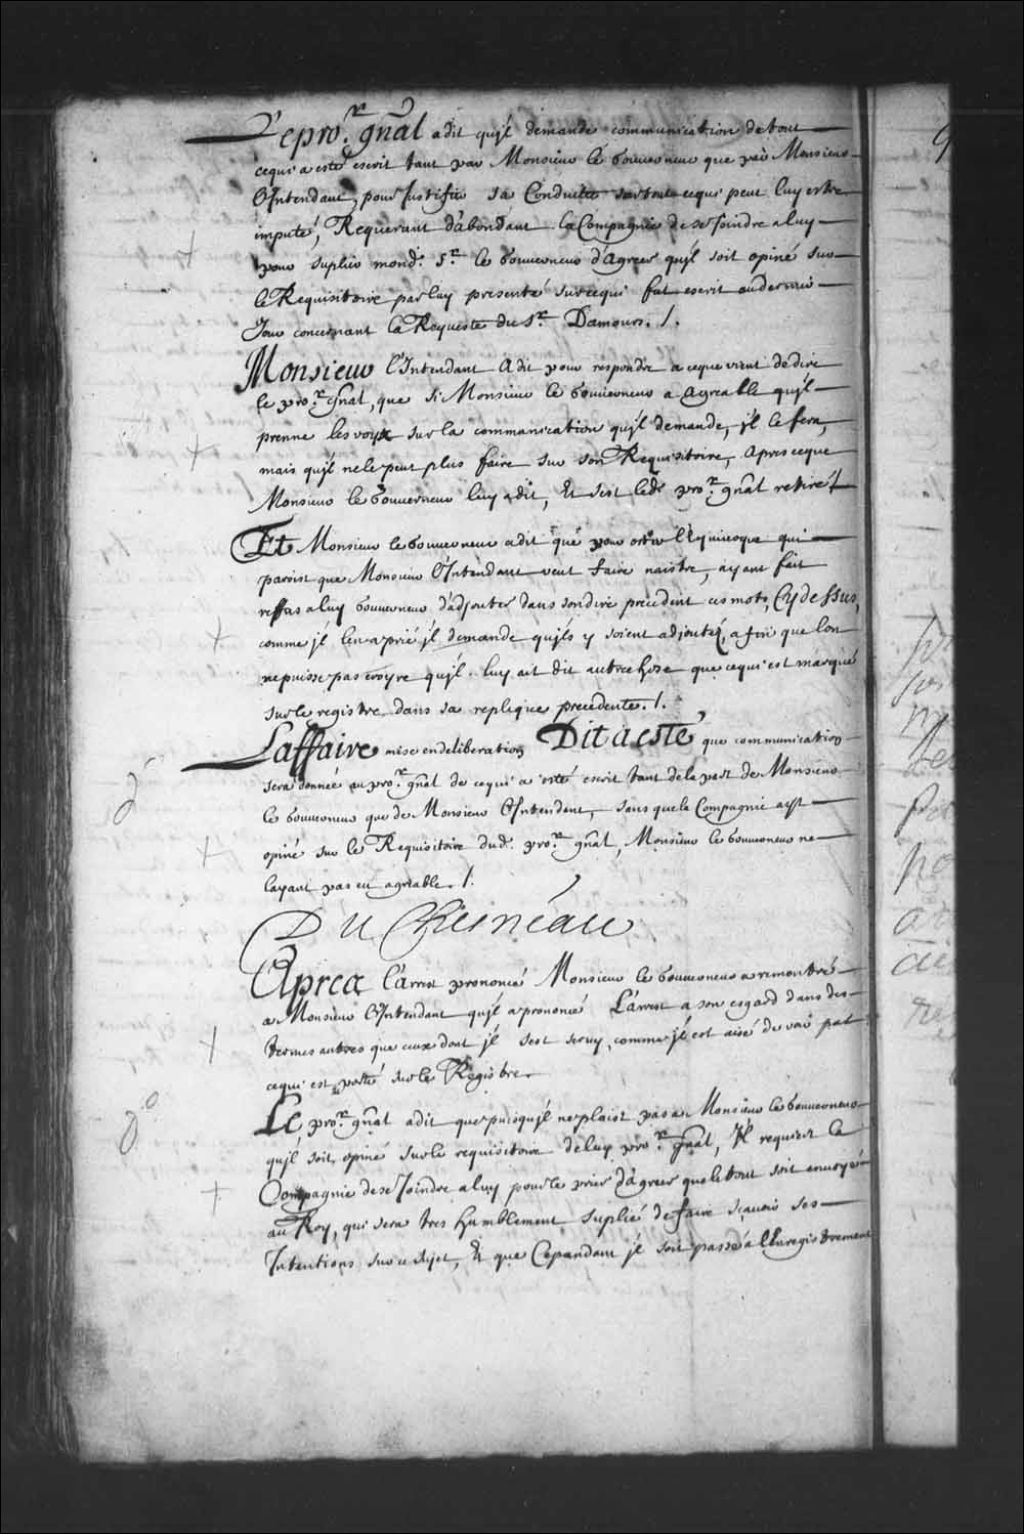 Le pro.r gnãl a dit qu'jl demande communication de tout
cequi a esté escrit tant par Monsieur le Gouuerneur que par Monsieur
l'Intendant, pour Justifier sa Conduite sur tout cequi peut luy estre
imputé, Requerant d'abondant la Compagnie de se Joindre a luy
pour suplier mond. S.r le Gouuerneur d'Agreer qu'jl soit opiné sur
le Requisitoire par luy presenté sur cequi fut escrit au dernier
Jour concernant la Requeste du S.r Damours. /.
Monsieur l'Intendant a dit pour respondre a ceque vient de dire
le pro.r gnãl, que si Monsieur le Gouuerneur a agreable qu'jl
prenne les voix sur la communication qu'jl demande, jl le fera,
mais qu'jl ne le peut plus faire sur son Requisitoire, apres ceque
Monsieur le Gouuerneur luy a dit, Et s'est led. pro.r gnãl retiré /.
Et Monsieur le Gouuerneur a dit que pour oster l'Equiuoque qui
paroist que Monsieur l'Intendant veut faire naistre, ayant fait
reffus a luy Gouuerneur d'adjouter dans son dire precedent ces mots, Cy dessus,
comme jl l'en a prié jl demande qu'jls y soient adjoutez, afin que l'on
ne puisse pas croyre qu'jl luy ait dit autre chose que cequi est marqué
sur le registre dans sa replique precedente. /.
L'affaire mise en deliberation Dit a esté que communication
sera donnée au pro.r gnãl de cequi a esté escrit tant de la part de Monsieur
le Gouuerneur que de Monsieur l'Intendant, sans que la Compagnie ayt
opiné sur le Requisitoire dud. pro.r gnãl, Monsieur le Gouuerneur ne
l'ayant pas eu agreable. /.
Du Chesneau
Apres l'arrest prononcé Monsieur le Gouuerneur a remontré
a Monsieur l'Intendant qu'jl a prononcé L'arrest a son esgard dans des
termes autres que ceux dont jl s'est seruy, comme jl est aisé de voir par
cequi est porté sur le Registre.
Le pro.r gnãl a dit que puisqu'jl ne plaist pas a Monsieur le Gouuerneur
qu'jl soit opiné sur le requisitoire de luy pro.r gnãl, Jl requiert la
Compagnie de se Joindre a luy pour le prier d'agreer que le tout soit enuoyé
au Roy, qui sera tres humblement suplié de faire sçauoir ses
Intentions sur ce sujet, Et que Cependant jl soit passé a l'Enregistrement